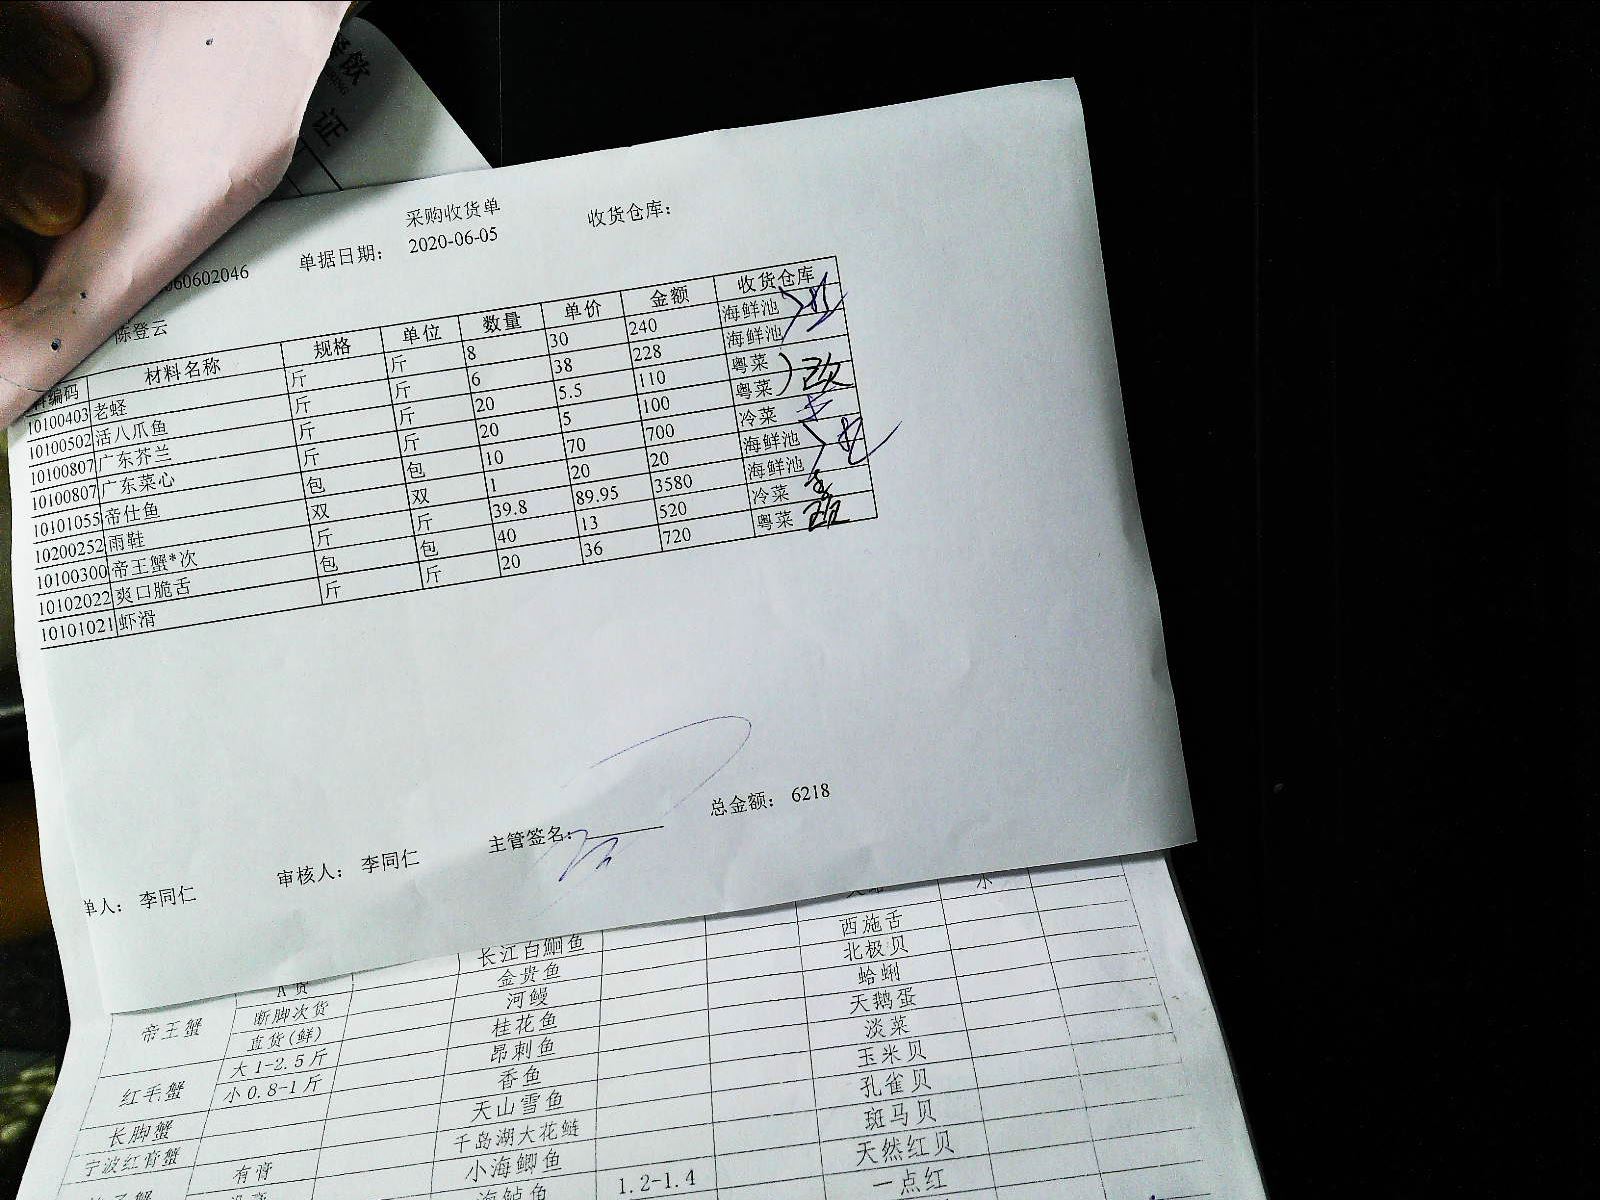 证
采购收货单
收货仓库：
060602046 单据日期： 2020-06-05
陈登云
编码 材料名称 规格 单位 数量 单价 金额 收货仓库
10100403 老蛏 斤 斤 8 30 240 海鲜池
10100502 活八爪鱼 斤 斤 6 38 228 海鲜池
10100807 广东芥兰 斤 斤 20 5.5 110 粤菜
10100807 广东菜心 斤 斤 20 5 100 粤菜
10101055 帝仕鱼 包 包 10 70 700 冷菜
10200252 雨鞋 双 双 1 20 20 海鲜池
10100300 帝王蟹*次 斤 斤 39.8 89.95 3580 海鲜池
10102022 爽口脆舌 包 包 40 13 520 冷菜
10101021 虾滑 斤 斤 20 36 720 粤菜
单人： 李同仁 审核人： 李同仁 主管签名： 总金额： 6218
小
长江白鮰鱼 西施舌
A货 金贵鱼 北极贝
帝王蟹 断脚次货 河鳗 蛤蜊
直货(鲜) 桂花鱼 天鹅蛋
红毛蟹 大1-2.5斤 昂刺鱼 淡菜
小0.8-1斤 香鱼 玉米贝
长脚蟹 天山雪鱼 孔雀贝
宁波红膏蟹 千岛湖大花鲢 斑马贝
有膏 小海鲫鱼 天然红贝
海鲈鱼 1.2-1.4 一点红